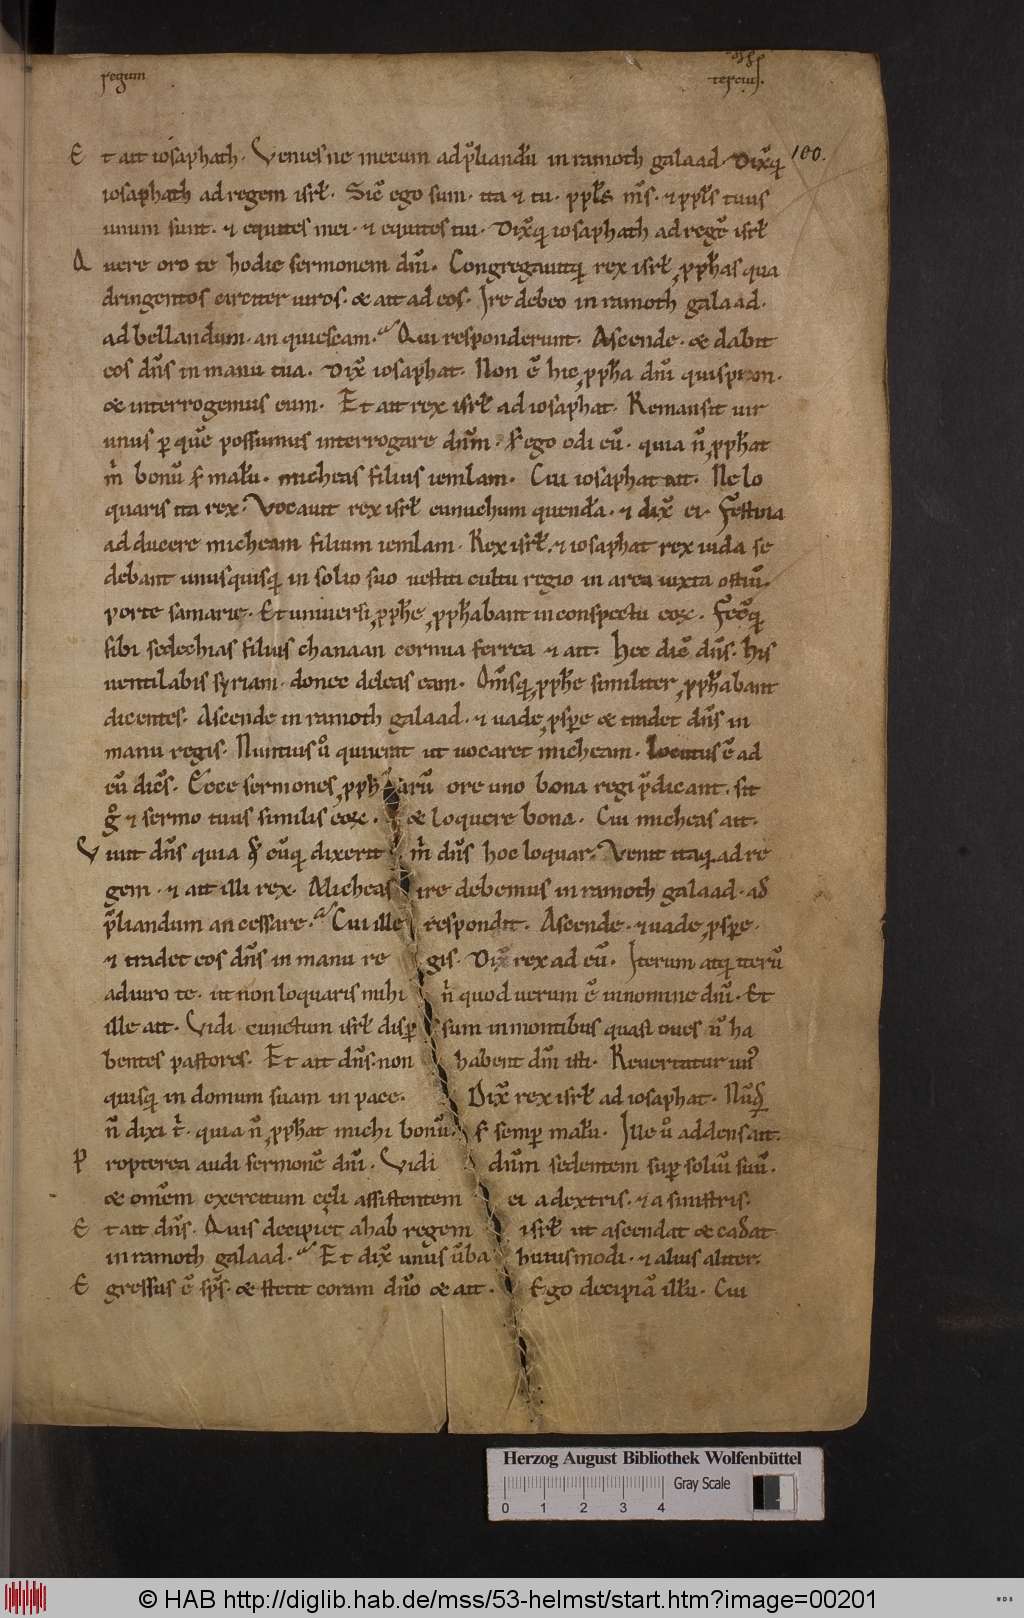 regum
tercius.
100.
Et ait iosaphath. Venies ne mecum ad p̄liandū in ramoth galaad. Dix̄q;
iosaphath ad regem isrl̄. Sic̄ ego sum. ita & tu. ppl̄s m̄s. & ppl̄s tuus
unum sunt. & equites mei. & equites tui. Dix̄q; iosaphath ad regē isrl̄
Avere oro te hodie sermonem dn̄i. Congregauitq; rex isrl̄ pph̄as qua
dringentos circiter uiros. & ait ad eos. Ire debeo in ramoth galaad.
ad bellandum. an quiescam. Qui responderunt. Ascende. & dabit
eos dn̄s in manu tua. Dix̄ iosaphat. Non ē hic pph̄a dn̄i quispiam.
& interrogemus eum. Et ait rex isrl̄ ad iosaphat. Remansit uir
unus p quē possumus interrogare dn̄m. s; ego odi eū. quia n̄ pph̄at
m̄ bonū s; malū. micheas filius iemlam. Cui iosaphat ait. Ne lo
quaris ita rex. Vocauit rex isrl̄ eunuchum quendā. & dix̄ ei. Festina
adducere micheam filium iemlam. Rex isrl̄. & iosaphat rex iuda se
debant unusquisq; in solio suo uestiti cultu regio in area iuxta ostiū
porte samarie. Et uniuersi pph̄e pph̄abant in conspectu eoꝝ. Fec̄q;
sibi sedechias filius chanaan cornua ferrea & ait. Hec dic̄ dn̄s. His
uentilabis syriam. donec deleas eam. Om̄sq; pph̄e similiter pph̄abant
dicentes. Ascende in ramoth galaad. & uade psp̄e & tradet dn̄s in
manu regis. Nuntius ū qui ierat ut uocaret micheam. Locutus ē ad
eū dic̄s. Ecce sermones pph̄arū ore uno bona regi p̄dicant. sit
g̊ & sermo tuus similis eoꝝ. & loquere bona. Cui micheas ait.
Viuit dn̄s quia qd̄ cūq; dixerit m̄ dn̄s hoc loquar. Venit itaq; ad re
gem. & ait illi rex. Micheas ire debemus in ramoth galaad. ad
p̄liandum an cessare. Cui ille respondit. Ascende. & uade psp̄e.
& tradet eos dn̄s in manu regis. Dix̄ rex ad eū. Iterum atq; iterū
adiuro te. ut non loquaris mihi n̄ quod uerum ē in nomine dn̄i. Et
ille ait. Vidi cunctum isrl̄ disp̄sum in montibus quasi oues n̄ ha
bentes pastores. Et ait dn̄s. non habent dn̄m isti. Reuertatur un̄
quisq; in domum suam in pace. Dix̄ rex isrl̄ ad iosaphat. Nūqd̄
n̄ dixi t̄. quia n̄ pph̄at michi bonū. s; semp malū. Ille ū addens ait.
Propterea audi sermonē dn̄i. Vidi dn̄m sedentem sup soliū suū.
& om̄em exercitum cęli assistentem ei a dextris. & a sinistris.
Et ait dn̄s. Quis decipiet ahab regem isrl̄ ut ascendat & cadat
in ramoth galaad. Et dix̄ unus ūba huiusmodi. & alius aliter.
Egressus ē sp̄s. & stetit coram dn̄o & ait. Ego decipiā illū. Cui
Herzog August Bibliothek Wolfenbüttel
Gray Scale
0 1 2 3 4
© HAB http://diglib.hab.de/mss/53-helmst/start.htm?image=00201